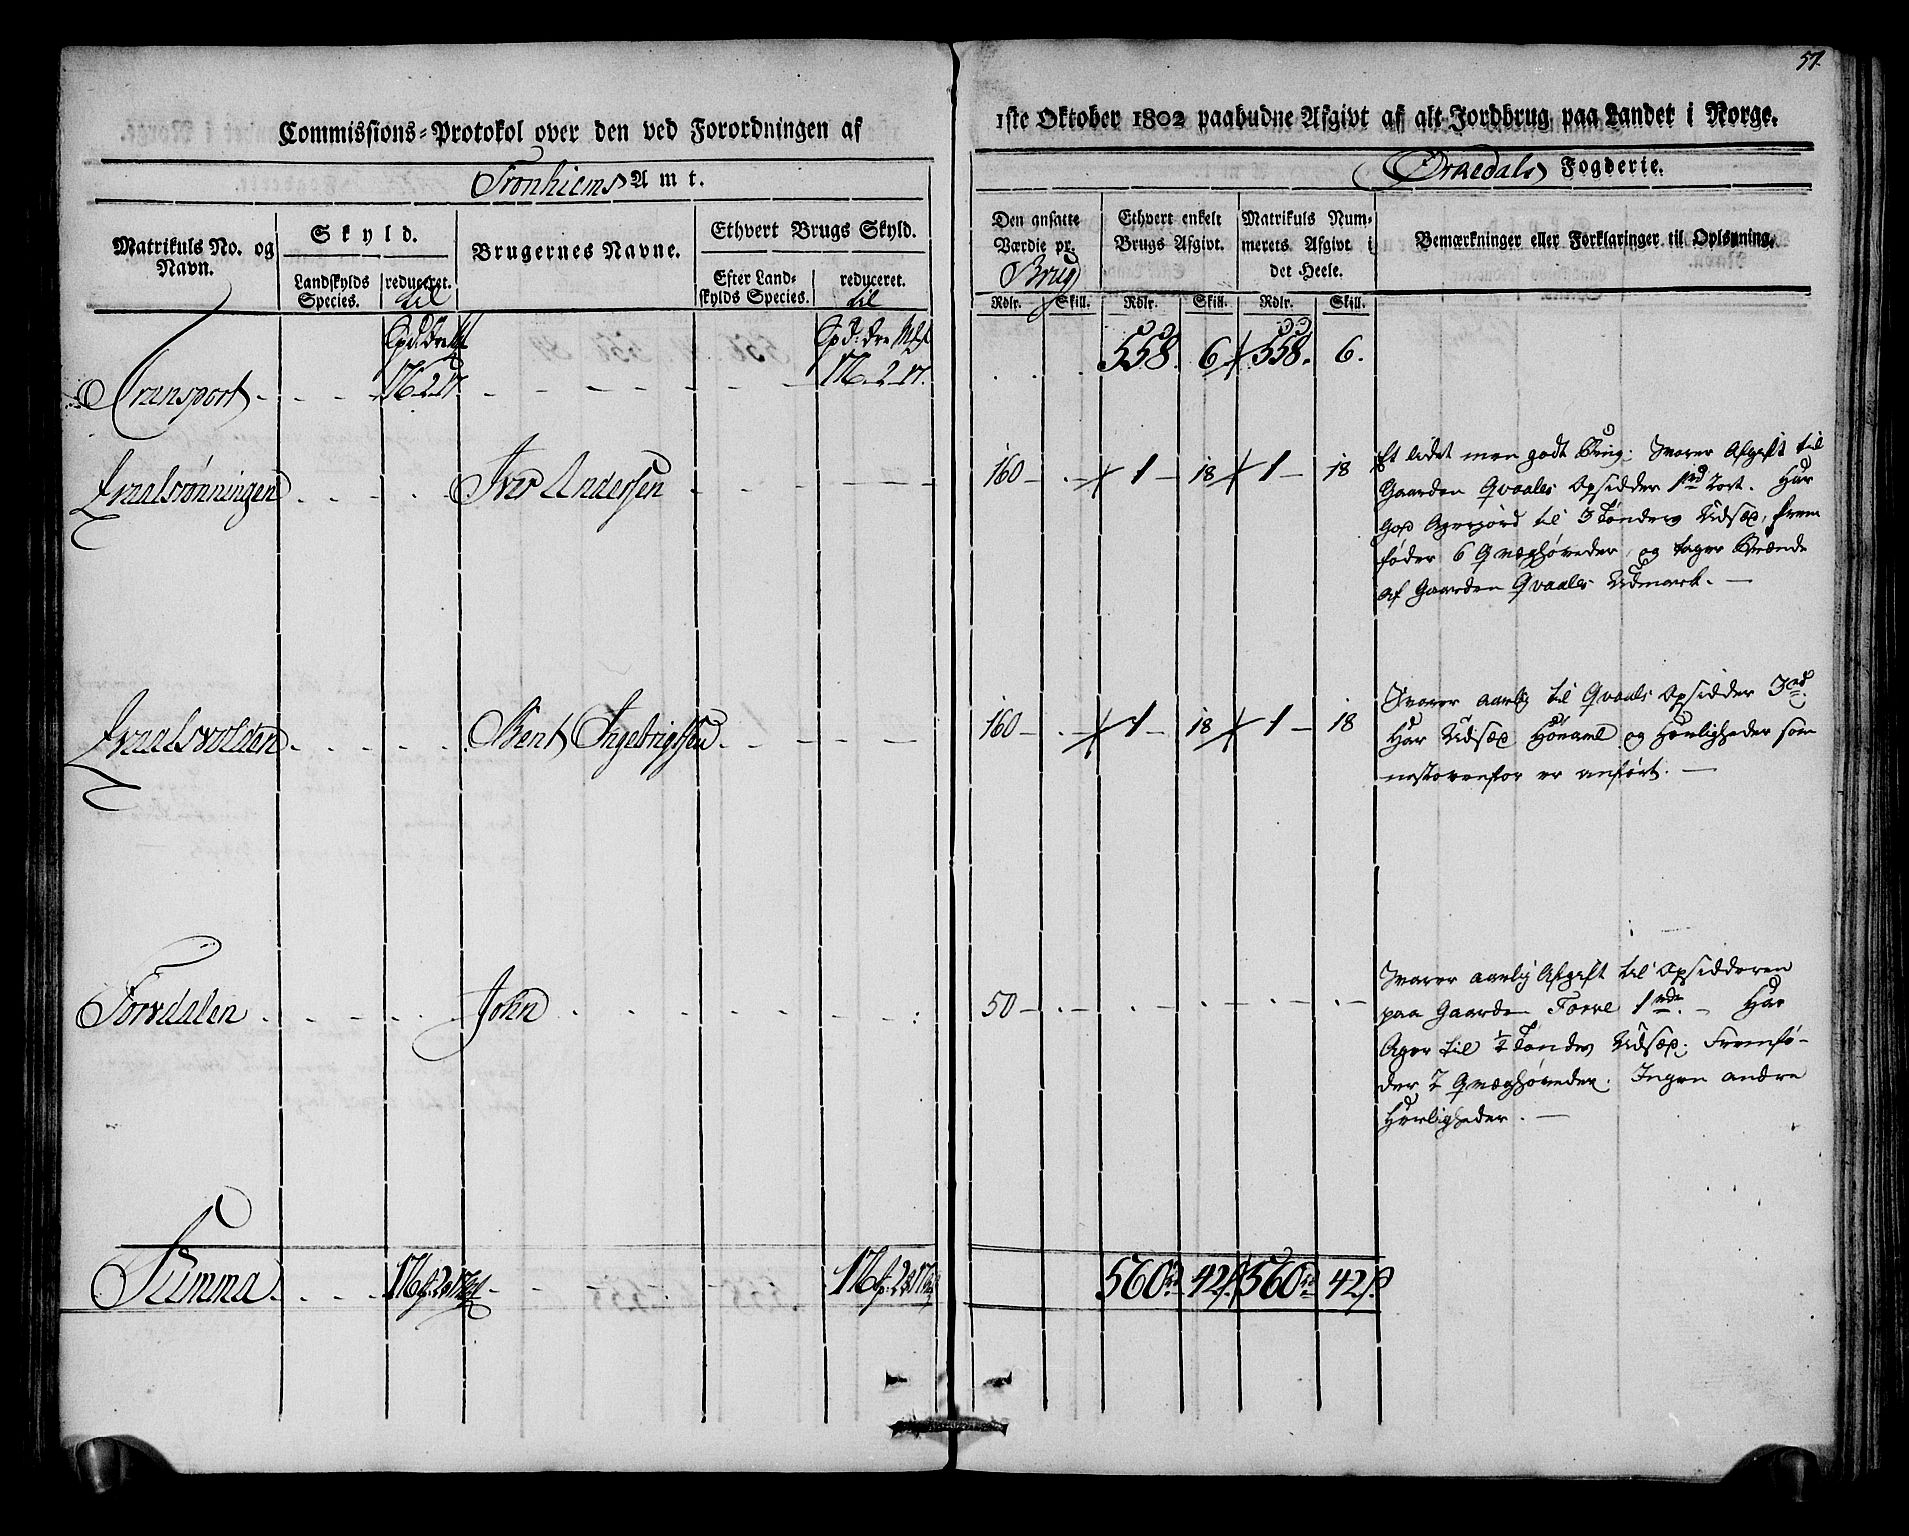 57.
Commissions-Protokol over den ved Forordningen af
1ste Oktober 1802 paabudne Afgivt af alt Jordbrug paa Landet i Norge.
Tronhiems Amt.
Orkedals Fogderie.
Matrikuls No. og Navn.
Skyld.
Landskylds Species.
reduceret. til
Brugernes Navne.
Ethvert Brugs Skyld.
Efter Landskylds Species.
reduceret. til
Den ansatte Værdie pr. Brug
Ethvert enkelt Brugs Afgivt.
Matrikuls Nummerets Afgivt i det Heele.
Bemærkninger eller Forklaringer til Oplysning.
Rdlr. Skill. Rdlr. Skill. Rdlr. Skill.
Transport 176 - 2 - 17. 176 - 2 - 17. 558. 6 558. 6.
Qvaalsrønningen Iver Andersen 160 1 18 1 18
Et lidet men godt Brug; Svarer Afgift til
Gaarden Qvaales Opsidder 1 rd Aort. Har
god Agerjord til 3 Tønders Udsæd, frem
føder 6 Qvæghøveder og tager Brænde
af Gaarden Qvaales Udmark.
Qvaalsvolden Bent Ingebrigtsen 160 1 18 1 18
Svarer aarlig til Qvaals Opsidder 3 rd.
Har Udsæd Høeavl og Herligheder som
næstovenfor er anført.
Forvdalen John 50
Svarer aarlig Afgift til Opsidderen
paa Gaarden Forve 1 rd. Har
Ager til ½ Tønders Udsæd; Fremfø-
der 2 Qvæghøveder. Ingen andre
Herligheder.
Summa 176 2 17 176 2 17 560 42 560 42